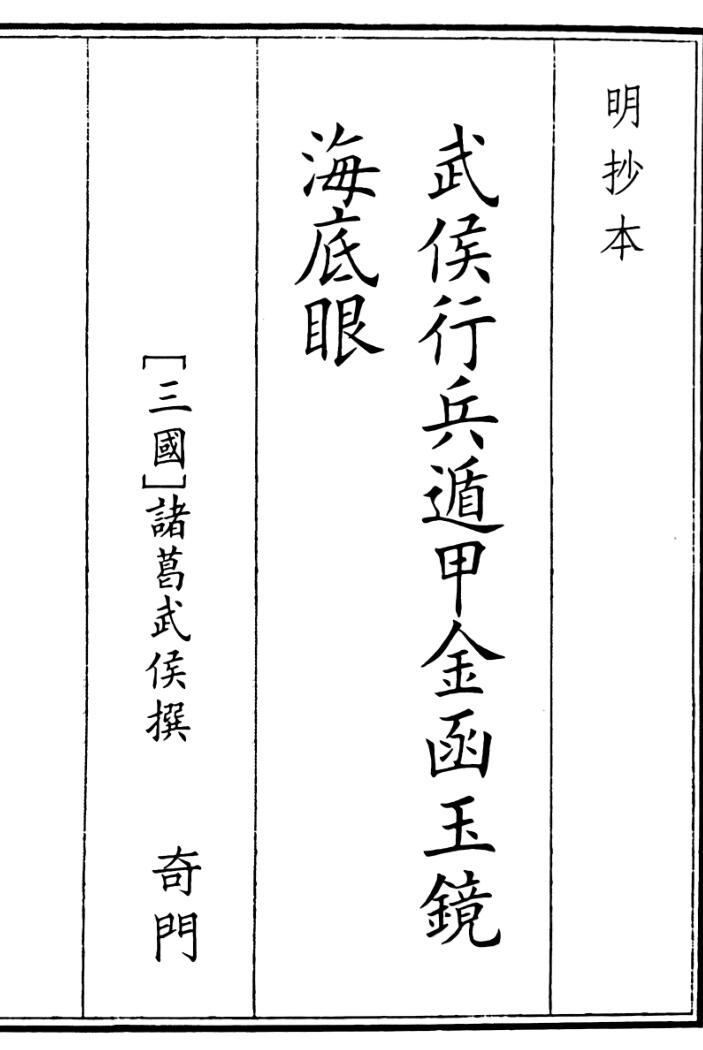 明抄本
武侯行兵遁甲金函玉鏡
海底眼
[三國]諸葛武侯撰 奇門